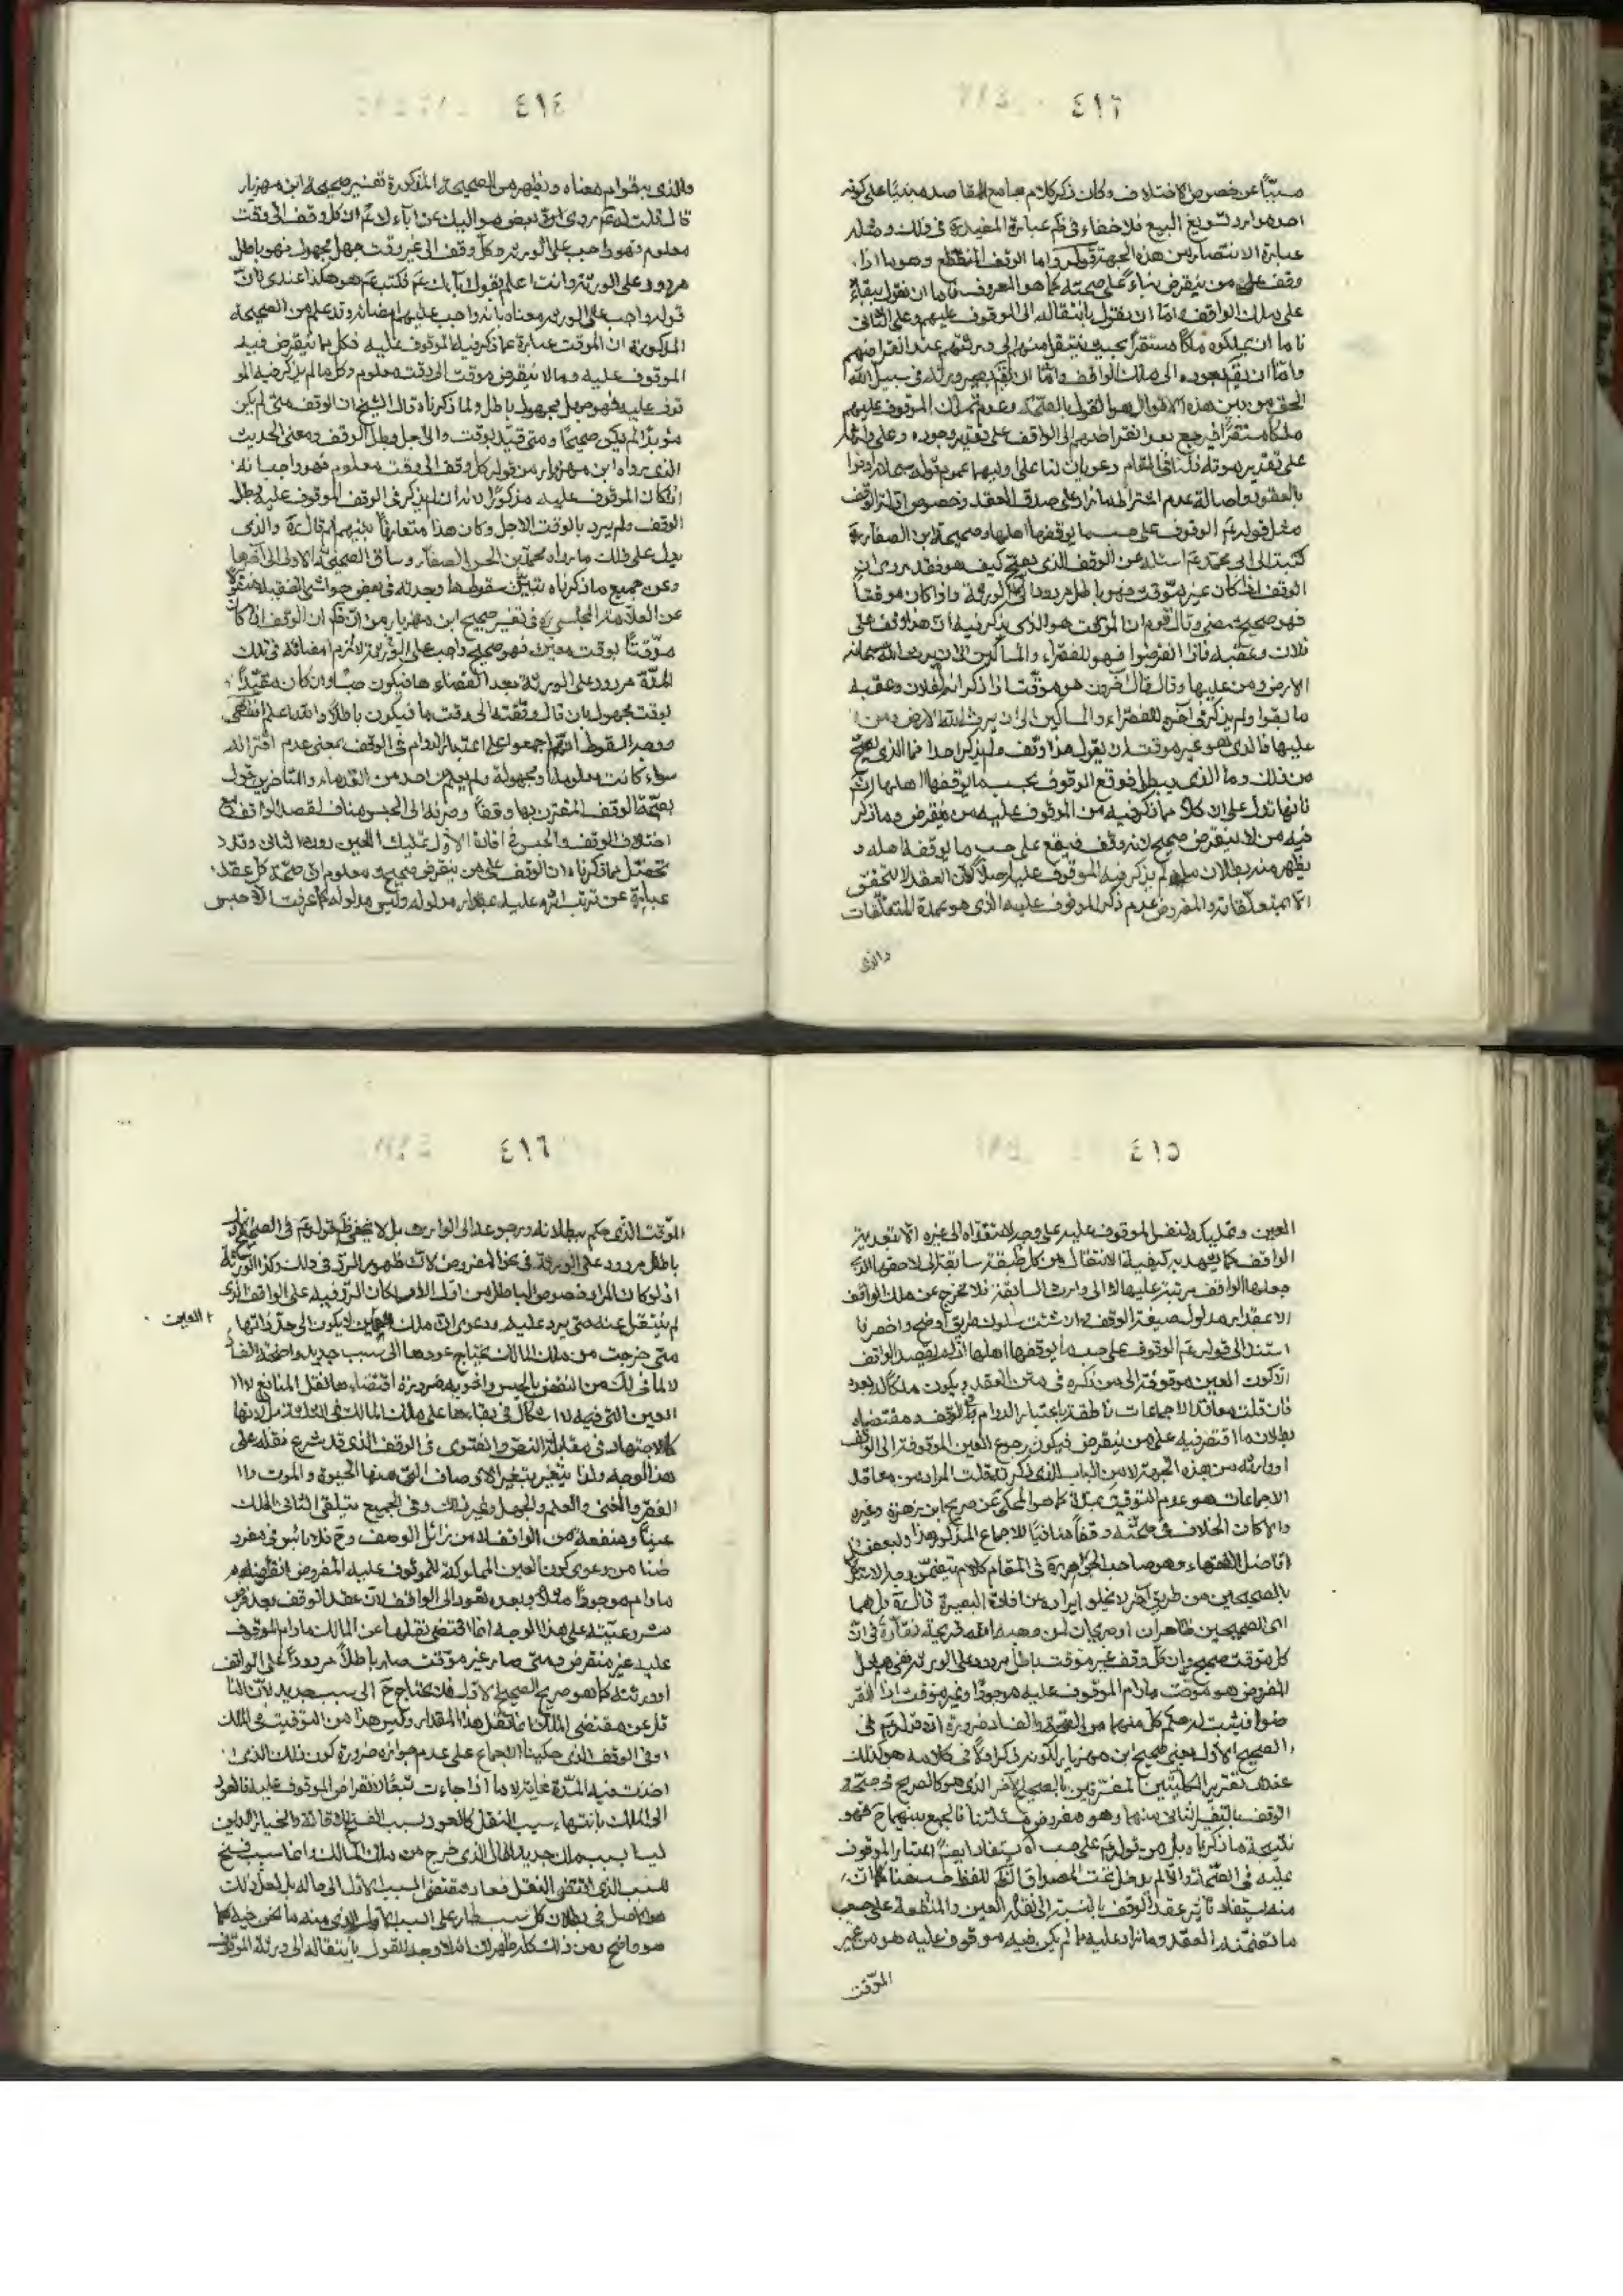 ٤١٣
مسبّبًا عن خصوص الاختلاف وكان ذكر كلام جامع المقاصد مبنيًا على كونه
احد موارد تسويغ البيع فلا خفاء في نظم عبارة المفيد ره في ذلك ومثله
عبارة الانتصار من هذه الجهة قوله واما الوقف المنقطع وهو ما اذا
وقف على من ينقرض بناءً على صحته كما هو المعروف فاما ان نقول ببقائه
على ملك الواقف واما ان نقول بانتقاله الى الموقوف عليهم وعلى الثاني
فاما ان يملكوه ملكًا مستقرًا بحيث ينتقل منهم الى ورثتهم عند انقراضهم
واما ان نقول بعوده الى ملك الواقف واما ان نقول بصيرورته في سبيل الله
الحق من بين هذه الاقوال هو القول بالصحة وعدم تملك الموقوف عليهم
ملكًا مستقرًا فيرجع بعد انقراضهم الى الواقف على تقدير وجوده وعلى وارثه
على تقدير موته فلنا في المقام دعويان لنا على اوليهما عموم قوله سبحانه اوفوا
بالعقود واصالة عدم اشتراط ما زاد على صدق العقد وخصوص ادلة الوقف
مثل قوله عم الوقوف على حسب ما يوقفها اهلها وصحيحة ابن الصفار قال
كتبت الى ابي محمد عم اسئله عن الوقف الذي يصح كيف هو فقد روى ان
الوقف اذا كان غير موقت فهو باطل مردود على الورثة واذا كان موقتًا
فهو صحيح ممضى وقال قوم ان الموقت هو الذي يذكر فيه انه وقف على
فلان وعقبه فاذا انقرضوا فهو للفقراء والمساكين الى ان يرث الله سبحانه
الارض ومن عليها وقال قال آخرون هو موقت اذا ذكر انه لفلان وعقبه
ما بقوا ولم يذكر في آخره للفقراء والمساكين الى ان يرث الله الارض ومن
عليها فالذي هو غير موقت ان يقول هذا وقف ولم يذكر احدا فما الذي يصح
من ذلك وما الذي يبطل فوقع الوقوف بحسب ما يوقفها اهلها انتهى
فانها تدل على ان كلا مما ذكر فيه من الموقوف عليه من ينقرض وما ذكر
فيه من لا ينقرض صحيح لانه وقف فيقع على حسب ما يوقفه اهله و
يظهر منه بطلان ما لم يذكر فيه الموقوف عليه اصلًا لان العقد لا يتحقق
الا بمتعلقاته والمفروض عدم ذكر الموقوف عليه الذي هو عمدة المتعلقات
والذي
٤١٤
والذي به قوام معناه ويظهر من الصحيحة المذكورة تفسير صحيحة ابن مهزيار
قال قلت له عم روى بعض مواليك عن آباءك عم ان كل وقف الى وقت
معلوم فهو واجب على الورثة وكل وقف الى غير وقت جهل مجهول فهو باطل
مردود على الورثة وانت اعلم بقول آبائك عم فكتب عم هو هكذا عندي فان
قوله واجب على الورثة معناه انه واجب عليهم امضائه وقد علم من الصحيحة
المذكورة ان الموقت عبارة عما ذكر فيه الموقوف عليه فكل ما ينقرض فيه
الموقوف عليه وما لا ينقرض موقت الى وقت معلوم وكل ما لم يذكر فيه المو
قوف عليه فهو جهل مجهول باطل ولما ذكرناه قال الشيخ ان الوقف متى لم يكن
مؤبدًا لم يكن صحيحًا ومتى قيد بوقت والى اجل بطل الوقف ومعنى الحديث
الذي رواه ابن مهزيار من قوله كل وقف الى وقت معلوم فهو واجب انه
اذا كان الموقوف عليه مذكورًا لانه ان لم يذكر في الوقف الموقوف عليه بطل
الوقف ولم يرد بالوقت الاجل وكان هذا متعارفًا بينهم ثم قال ره والذي
يدل على ذلك ما رواه محمد بن الحسن الصفار وساق الصحيحة الاولى الى آخرها
وعن جميع ما ذكرناه تبيّن سقوط ما وجدته في بعض حواشي الفقيه منقولًا
عن العلامة المجلسي ره في تفسير صحيح ابن مهزيار من انه ذكر ان الوقف اذا كان
موقتًا بوقت معين فهو صحيح واجب على الورثة لازم امضائه في تلك
المدة مردود على الورثة بعد انقضاءها فيكون حبسًا وان كان مقيّدًا
بوقت مجهول بان قال وقفته الى وقت ما فيكون باطلًا والله اعلم انتهى
ووجه السقوط انهم اجمعوا على اعتبار الدوام في الوقف بمعنى عدم اقترانه
سواء كانت معلومة او مجهولة ولم يعلم من احد من القدماء والمتأخرين قول
بصحة الوقف المقترن بها وقفًا وصرفه الى الحبس مناف لقصد الواقف مع
اختلاف الوقف والحبس في افادة الاول تمليك العين دون الثاني وقد
تحصّل مما ذكرناه ان الوقف على من ينقرض صحيح ومعلوم ان صحة كل عقد
عبارة عن ترتب اثره عليه على مدلوله وليس مدلوله كما عرفت الا حبس
٤١٥
العين وتمليك ولنفس الموقوف عليه على وجه لا تتعداه الى غيره الا بتعدية
الواقف كما يشهد به كيفية الانتقال من كل طبقة سابقة الى لاحقها الذي
جعلها الواقف مرتبة عليها لا الى وارث السابقة فلا تخرج عن ملك الواقف
الا مقدار مدلول صيغة الوقف وان شئت سلوك طريق اوضح واخصر فا
استند الى قوله عم الوقوف على حسب ما يوقفها اهلها اذ لم يقصد الواقف
الا كون العين موقوفة الى من ذكره في متن العقد ويكون ملكًا له بعده
فان قلت معاقد الاجماعات ناطقة باعتبار الدوام في الوقف ومقتضاه
بطلان ما اقتصر فيه على من ينقرض فيكون رجوع العين الموقوفة الى الواقف
او وارثه من هذه الجهة لا من الباب الذي ذكر قلت المراد من معاقد
الاجماعات هو عدم التوقيت بمدة كما هو المحكي عن صريح ابن زهرة وغيره
والا كان الخلاف في صحته وقفًا منافيًا للاجماع المذكور هذا ولبعض
افاضل الفقهاء وهو صاحب الجواهر ره في المقام كلام يتضمن وجه الاستدلال
بالصحيحين من طريق آخر لا يخلو ايراده عن افادة البصيرة قال ره بل هما
اي الصحيحين ظاهران او صريحان لمن وهبه الله قريحة نقادة في ان
كل موقت صحيح وان كل وقف غير موقت باطل مردود على الورثة ففي مثل
المفروض هو موقت ما دام الموقوف عليه موجودًا وغير موقت اذا انقر
ضوا فيثبت له حكم كل منهما من الصحة والفساد ضرورة ان قوله عم في
الصحيح الاول يعني صحيح ابن مهزيار لكونه ذكر اولًا في كلامه هو كذلك
عندي تقرير الكليتين المفترقين بالصحيح الآخر الذي هو كالصريح في صحة
الوقف بالتفسير الثاني منهما وهو مفروض مسئلتنا فالجمع بينهما ح فهو
نتيجة ما ذكرناه بل من قوله عم على حسب اه يستفاد ايضًا اعتبار الموقوف
عليه في الصحة اذ والا لم يدخل تحت المصداق
منه يستفاد تأثير عقد الوقف بالنسبة الى نقل العين والمنفعة على حسب
ما تضمنه العقد وما زاد عليه مما لم يكن فيه موقوف عليه هو من غير
الموقت
٤١٦
الموقت الذي حكم ببطلانه ورجوعه الى الوارث بل لا يخفى ظ قوله عم في الصحيح
باطل مردود على الورثة في نحو المفروض لان ظهور الرد في ذلك وكذا الورثة
اذ لو كان المراد خصوص الباطل من اول الامر كان الرد فيه على الواقف الذي
لم ينتقل عنه حتى يرد عليه ودعوى ان ملك العين لا يكون الى حد ذاتها
العين
متى خرجت من ملك المالك يحتاج عودها الى سبب جديد واضحة الفسا
د لما في ذلك من النقض بالحبس واخويه ضرورة اقتضاءها نقل المنافع لا
العين التي فيه لا اشكال في بقاءها على ملك المالك في الثلثة مل لانها
كالاجتهاد في مقابلة النص والفتوى في الوقف الذي قد شرع نقله على
هذا الوجه ولذا يتغير بتغير الاوصاف التي منها الحيوة والموت و
الفقر والغنى والعلم والجهل وغير ذلك وفي الجميع يتلقى الثاني الملك
عينًا ومنفعة من الواقف لا من زائل الوصف وح فلا بأس في مفرو
ضنا من دعوى كون العين المملوكة للموقوف عليه المفروض انقراضه
ما دام موجودًا مثلًا وبعده تعود الى الواقف لان عقد الوقف بعد فرض
مشروعيته على هذا الوجه انما اقتضى نقلها عن المالك ما دام الموقوف
عليه غير منقرض ومتى صار غير موقت صار باطلًا مردودًا على الواقف
او ورثته كما هو صريح الصحيح الاول فلا يحتاج ح الى سبب جديد لان النا
قل عن مقتضى الملك انما نقل هذا المقدار وليس هذا من التوقيت في الملك
او في الوقف الذي حكينا الاجماع على عدم جوازه ضرورة كون ذلك الذي
اخذت فيه المدة غاية لا ما اذا جاءت تبعًا لانقراض الموقوف عليه فالعود
الى الملك بانتهاء سبب النقل كالعود بسبب الفسخ بالاقالة والخيار الذين
ليسا بسبب ملك جديد للمال الذي خرج من ملك المالك وانما سبب فسخ
للسبب الذي اقتضى النقل فعاد مقتضى السبب الاول الى حاله بل لعل ذلك
هو الاصل في بطلان كل سبب طار على السبب الاول الذي منه ما نحن فيه كما
هو واضح ومن ذلك كله ظهر لك انه لا وجه للقول بانتقاله الى ورثة الموقوف